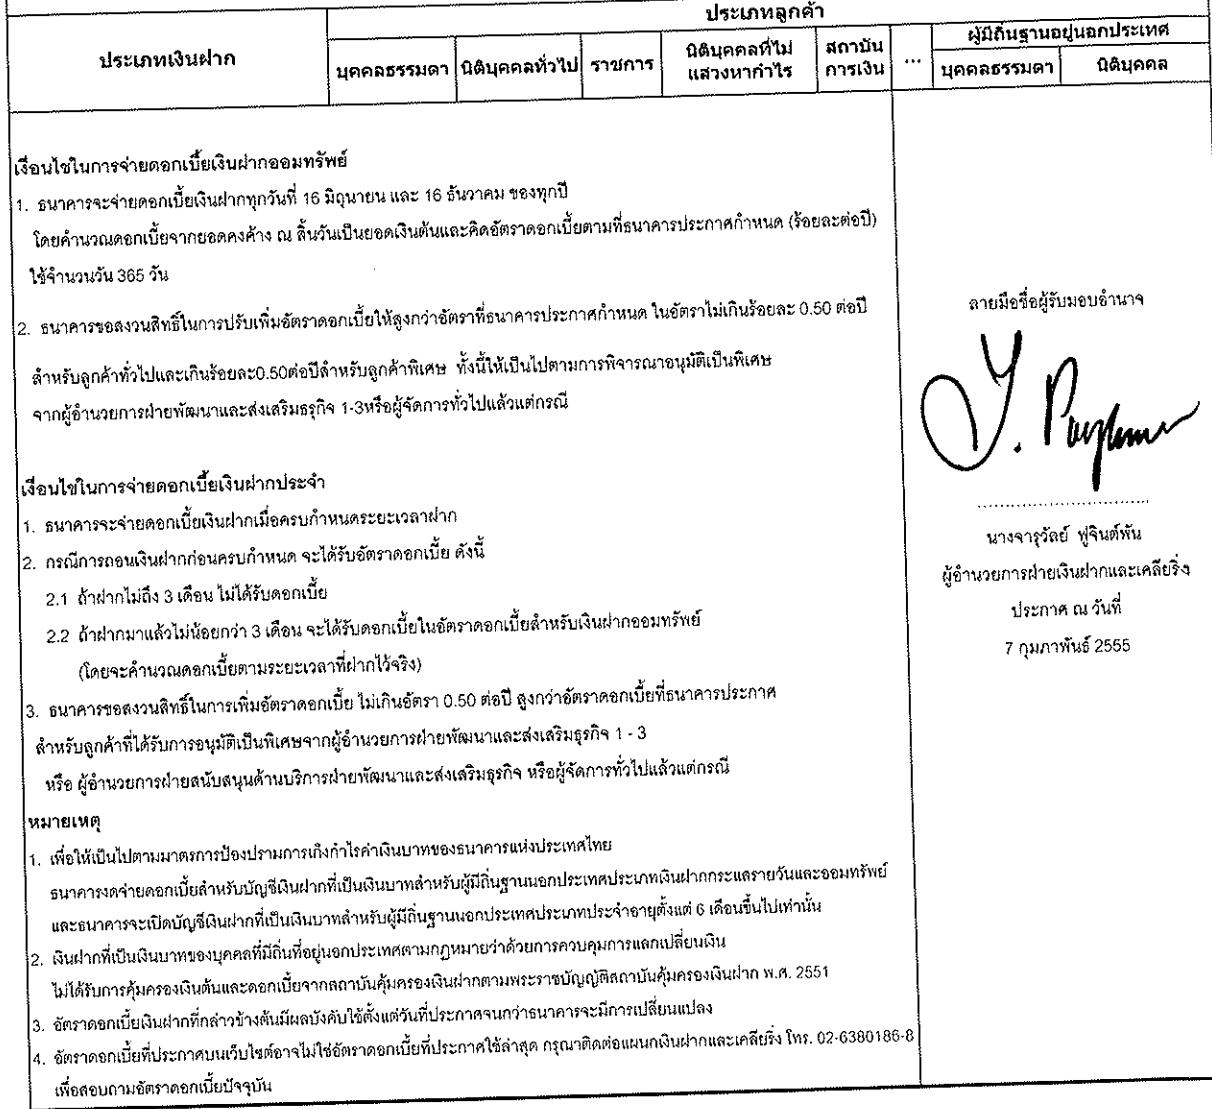 ประเภทเงินฝาก
ประเภทลูกค้า
บุคคลธรรมดา
นิติบุคคลทั่วไป
ราชการ
นิติบุคคลที่ไม่
แสวงหากำไร
สถาบัน
การเงิน
...
ผู้มีถิ่นฐานอยู่นอกประเทศ
บุคคลธรรมดา
นิติบุคคล
เงื่อนไขในการจ่ายดอกเบี้ยเงินฝากออมทรัพย์
1. ธนาคารจะจ่ายดอกเบี้ยเงินฝากทุกวันที่ 16 มิถุนายน และ 16 ธันวาคม ของทุกปี
โดยคำนวณดอกเบี้ยจากยอดคงค้าง ณ สิ้นวันเป็นยอดเงินต้นและคิดอัตราดอกเบี้ยตามที่ธนาคารประกาศกำหนด (ร้อยละต่อปี)
ใช้จำนวนวัน 365 วัน
2. ธนาคารขอสงวนสิทธิ์ในการปรับเพิ่มอัตราดอกเบี้ยให้สูงกว่าอัตราที่ธนาคารประกาศกำหนด ในอัตราไม่เกินร้อยละ 0.50 ต่อปี
สำหรับลูกค้าทั่วไปและเกินร้อยละ0.50ต่อปีสำหรับลูกค้าพิเศษ ทั้งนี้ให้เป็นไปตามการพิจารณาอนุมัติเป็นพิเศษ
จากผู้อำนวยการฝ่ายพัฒนาและส่งเสริมธรุกิจ 1-3หรือผู้จัดการทั่วไปแล้วแต่กรณี
เงื่อนไขในการจ่ายดอกเบี้ยเงินฝากประจำ
1. ธนาคารจะจ่ายดอกเบี้ยเงินฝากเมื่อครบกำหนดระยะเวลาฝาก
2. กรณีการถอนเงินฝากก่อนครบกำหนด จะได้รับอัตราดอกเบี้ย ดังนี้
2.1 ถ้าฝากไม่ถึง 3 เดือน ไม่ได้รับดอกเบี้ย
2.2 ถ้าฝากมาแล้วไม่น้อยกว่า 3 เดือน จะได้รับดอกเบี้ยในอัตราดอกเบี้ยสำหรับเงินฝากออมทรัพย์
(โดยจะคำนวณดอกเบี้ยตามระยะเวลาที่ฝากไว้จริง)
3. ธนาคารขอสงวนสิทธิ์ในการเพิ่มอัตราดอกเบี้ย ไม่เกินอัตรา 0.50 ต่อปี สูงกว่าอัตราดอกเบี้ยที่ธนาคารประกาศ
สำหรับลูกค้าที่ได้รับการอนุมัติเป็นพิเศษจากผู้อำนวยการฝ่ายพัฒนาและส่งเสริมธุรกิจ 1 - 3
หรือ ผู้อำนวยการฝ่ายสนับสนุนด้านบริการฝ่ายพัฒนาและส่งเสริมธุรกิจ หรือผู้จัดการทั่วไปแล้วแต่กรณี
หมายเหตุ
1. เพื่อให้เป็นไปตามมาตรการป้องปรามการเก็งกำไรค่าเงินบาทของธนาคารแห่งประเทศไทย
ธนาคารงดจ่ายดอกเบี้ยสำหรับบัญชีเงินฝากที่เป็นเงินบาทสำหรับผู้มีถิ่นฐานนอกประเทศประเภทเงินฝากกระแสรายวันและออมทรัพย์
และธนาคารจะเปิดบัญชีเงินฝากที่เป็นเงินบาทสำหรับผู้มีถิ่นฐานนอกประเทศประเภทประจำอายุตั้งแต่ 6 เดือนขึ้นไปเท่านั้น
2. เงินฝากที่เป็นเงินบาทของบุคคลที่มีถิ่นที่อยู่นอกประเทศตามกฎหมายว่าด้วยการควบคุมการแลกเปลี่ยนเงิน
ไม่ได้รับการคุ้มครองเงินต้นและดอกเบี้ยจากสถาบันคุ้มครองเงินฝากตามพระราชบัญญัติสถาบันคุ้มครองเงินฝาก พ.ศ. 2551
3. อัตราดอกเบี้ยเงินฝากที่กล่าวข้างต้นมีผลบังคับใช้ตั้งแต่วันที่ประกาศจนกว่าธนาคารจะมีการเปลี่ยนแปลง
4. อัตราดอกเบี้ยที่ประกาศบนเว็บไซต์อาจไม่ใช่อัตราดอกเบี้ยที่ประกาศใช้ล่าสุด กรุณาติดต่อแผนกเงินฝากและเคลียริ่ง โทร. 02-6380186-8
เพื่อสอบถามอัตราดอกเบี้ยปัจจุบัน
ลายมือชื่อผู้รับมอบอำนาจ
..............................
นางจารุวัลย์ ฟูจินต์พัน
ผู้อำนวยการฝ่ายเงินฝากและเคลียริ่ง
ประกาศ ณ วันที่
7 กุมภาพันธ์ 2555